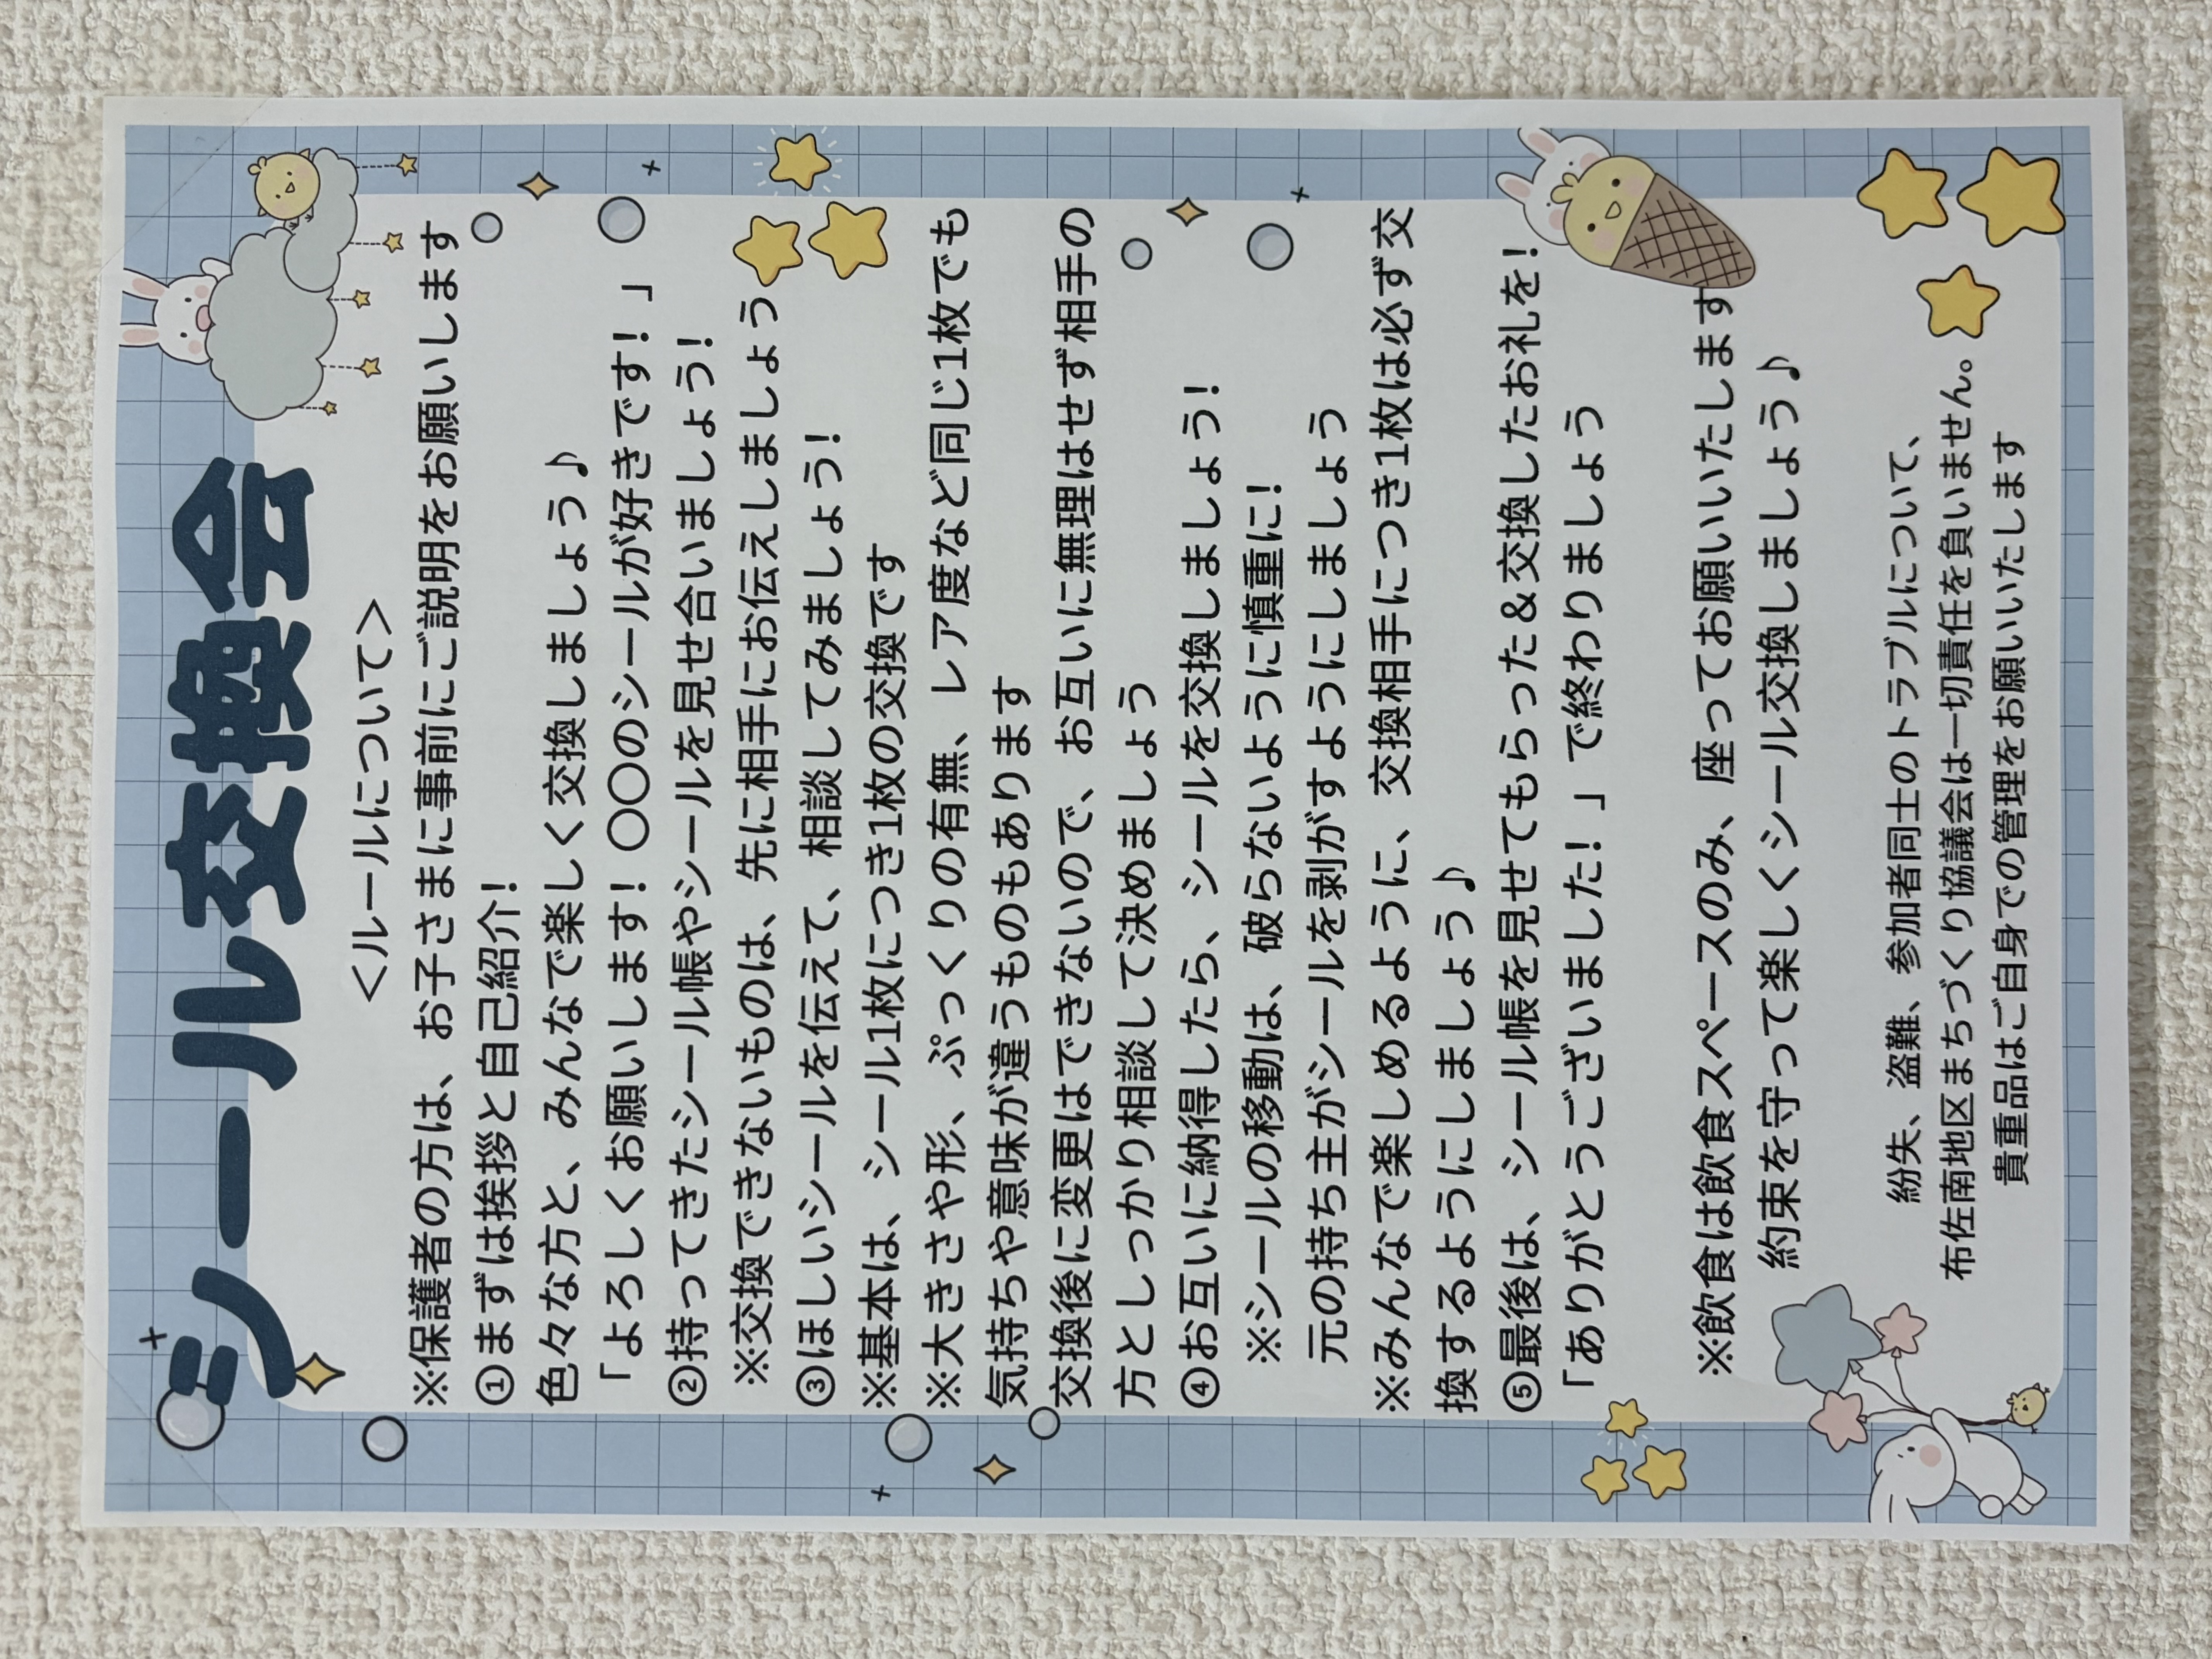 シール交換会
＜ルールについて＞
※保護者の方は、お子さまに事前にご説明をお願いします
①まずは挨拶と自己紹介！
色々な方と、みんなで楽しく交換しましょう♪
「よろしくお願いします！〇〇のシールが好きです！」
②持ってきたシール帳やシールを見せ合いましょう！
※交換できないものは、先に相手にお伝えしましょう
③ほしいシールを伝えて、相談してみましょう！
※基本は、シール1枚につき1枚の交換です
※大きさや形、ぷっくりの有無、レア度など同じ1枚でも
気持ちや意味が違うものもあります
交換後に変更はできないので、お互いに無理はせず相手の
方としっかり相談して決めましょう
④お互いに納得したら、シールを交換しましょう！
※シールの移動は、破らないように慎重に！
元の持ち主がシールを剥がすようにしましょう
※みんなで楽しめるように、交換相手につき1枚は必ず交
換するようにしましょう♪
⑤最後は、シール帳を見せてもらった＆交換したお礼を！
「ありがとうございました！」で終わりましょう
※飲食は飲食スペースのみ、座ってお願いいたします
約束を守って楽しくシール交換しましょう♪
紛失、盗難、参加者同士のトラブルについて、
布佐南地区まちづくり協議会は一切責任を負いません。
貴重品はご自身での管理をお願いいたします